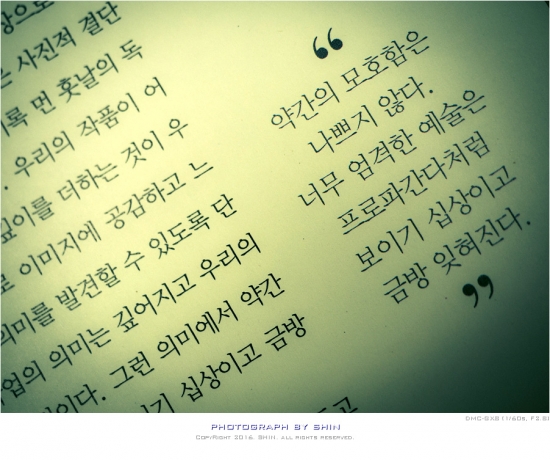 상으로
는 사진적 결단
록 먼 훗날의 독
. 우리의 작품이 어
깊이를 더하는 것이 우
로 이미지에 공감하고 느
의미를 발견할 수 있도록 단
업의 의미는 깊어지고 우리의
이다. 그런 의미에서 약간
기 십상이고 금방
고
“
약간의 모호함은
나쁘지 않다.
너무 엄격한 예술은
프로파간다처럼
보이기 십상이고
금방 잊혀진다.
”
DMC-GX8 (1/60s, F2.8)
PHOTOGRAPH BY SHIN
CopyRight 2016. SHIN. all rights reserved.